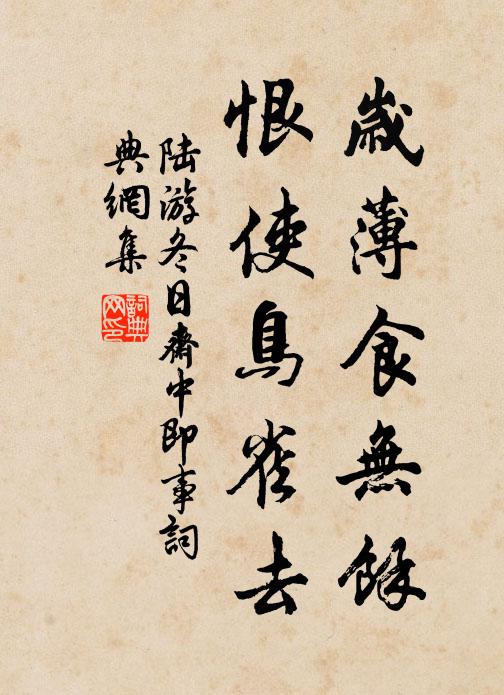 歲薄食無餘
恨使鳥雀去
陸游冬日齋中即事詞
典網集
詞典網印